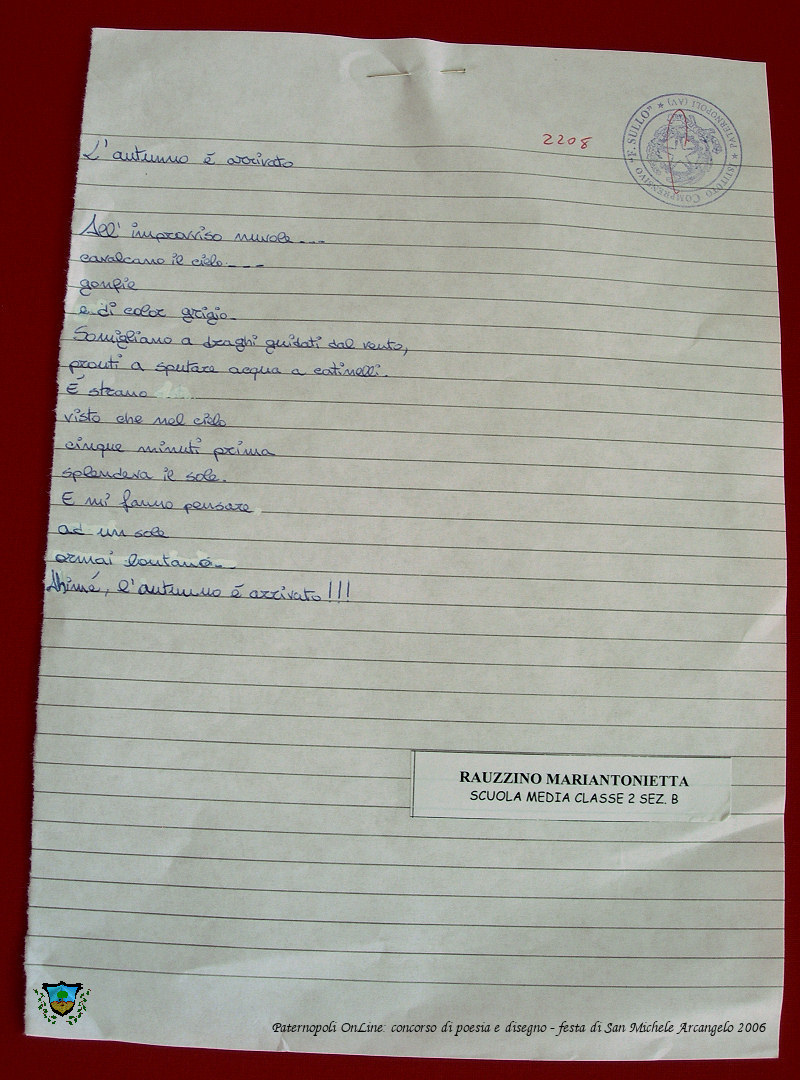 2208
ISTITUTO COMPRENSIVO "F. SULLO" ★ PATERNOPOLI (AV) ★
L'autunno é arrivato
All' improvviso nuvole....
cavalcano il cielo....
gonfie
e di color grigio.
Somigliano a draghi guidati dal vento,
pronti a sputare acqua a catinelli.
É strano
visto che nel cielo
cinque minuti prima
splendeva il sole.
E mi fanno pensare
ad un sole
ormai lontano...
Ahimé, l'autunno é arrivato!!!
RAUZZINO MARIANTONIETTA
SCUOLA MEDIA CLASSE 2 SEZ. B
Paternopoli OnLine: concorso di poesia e disegno - festa di San Michele Arcangelo 2006